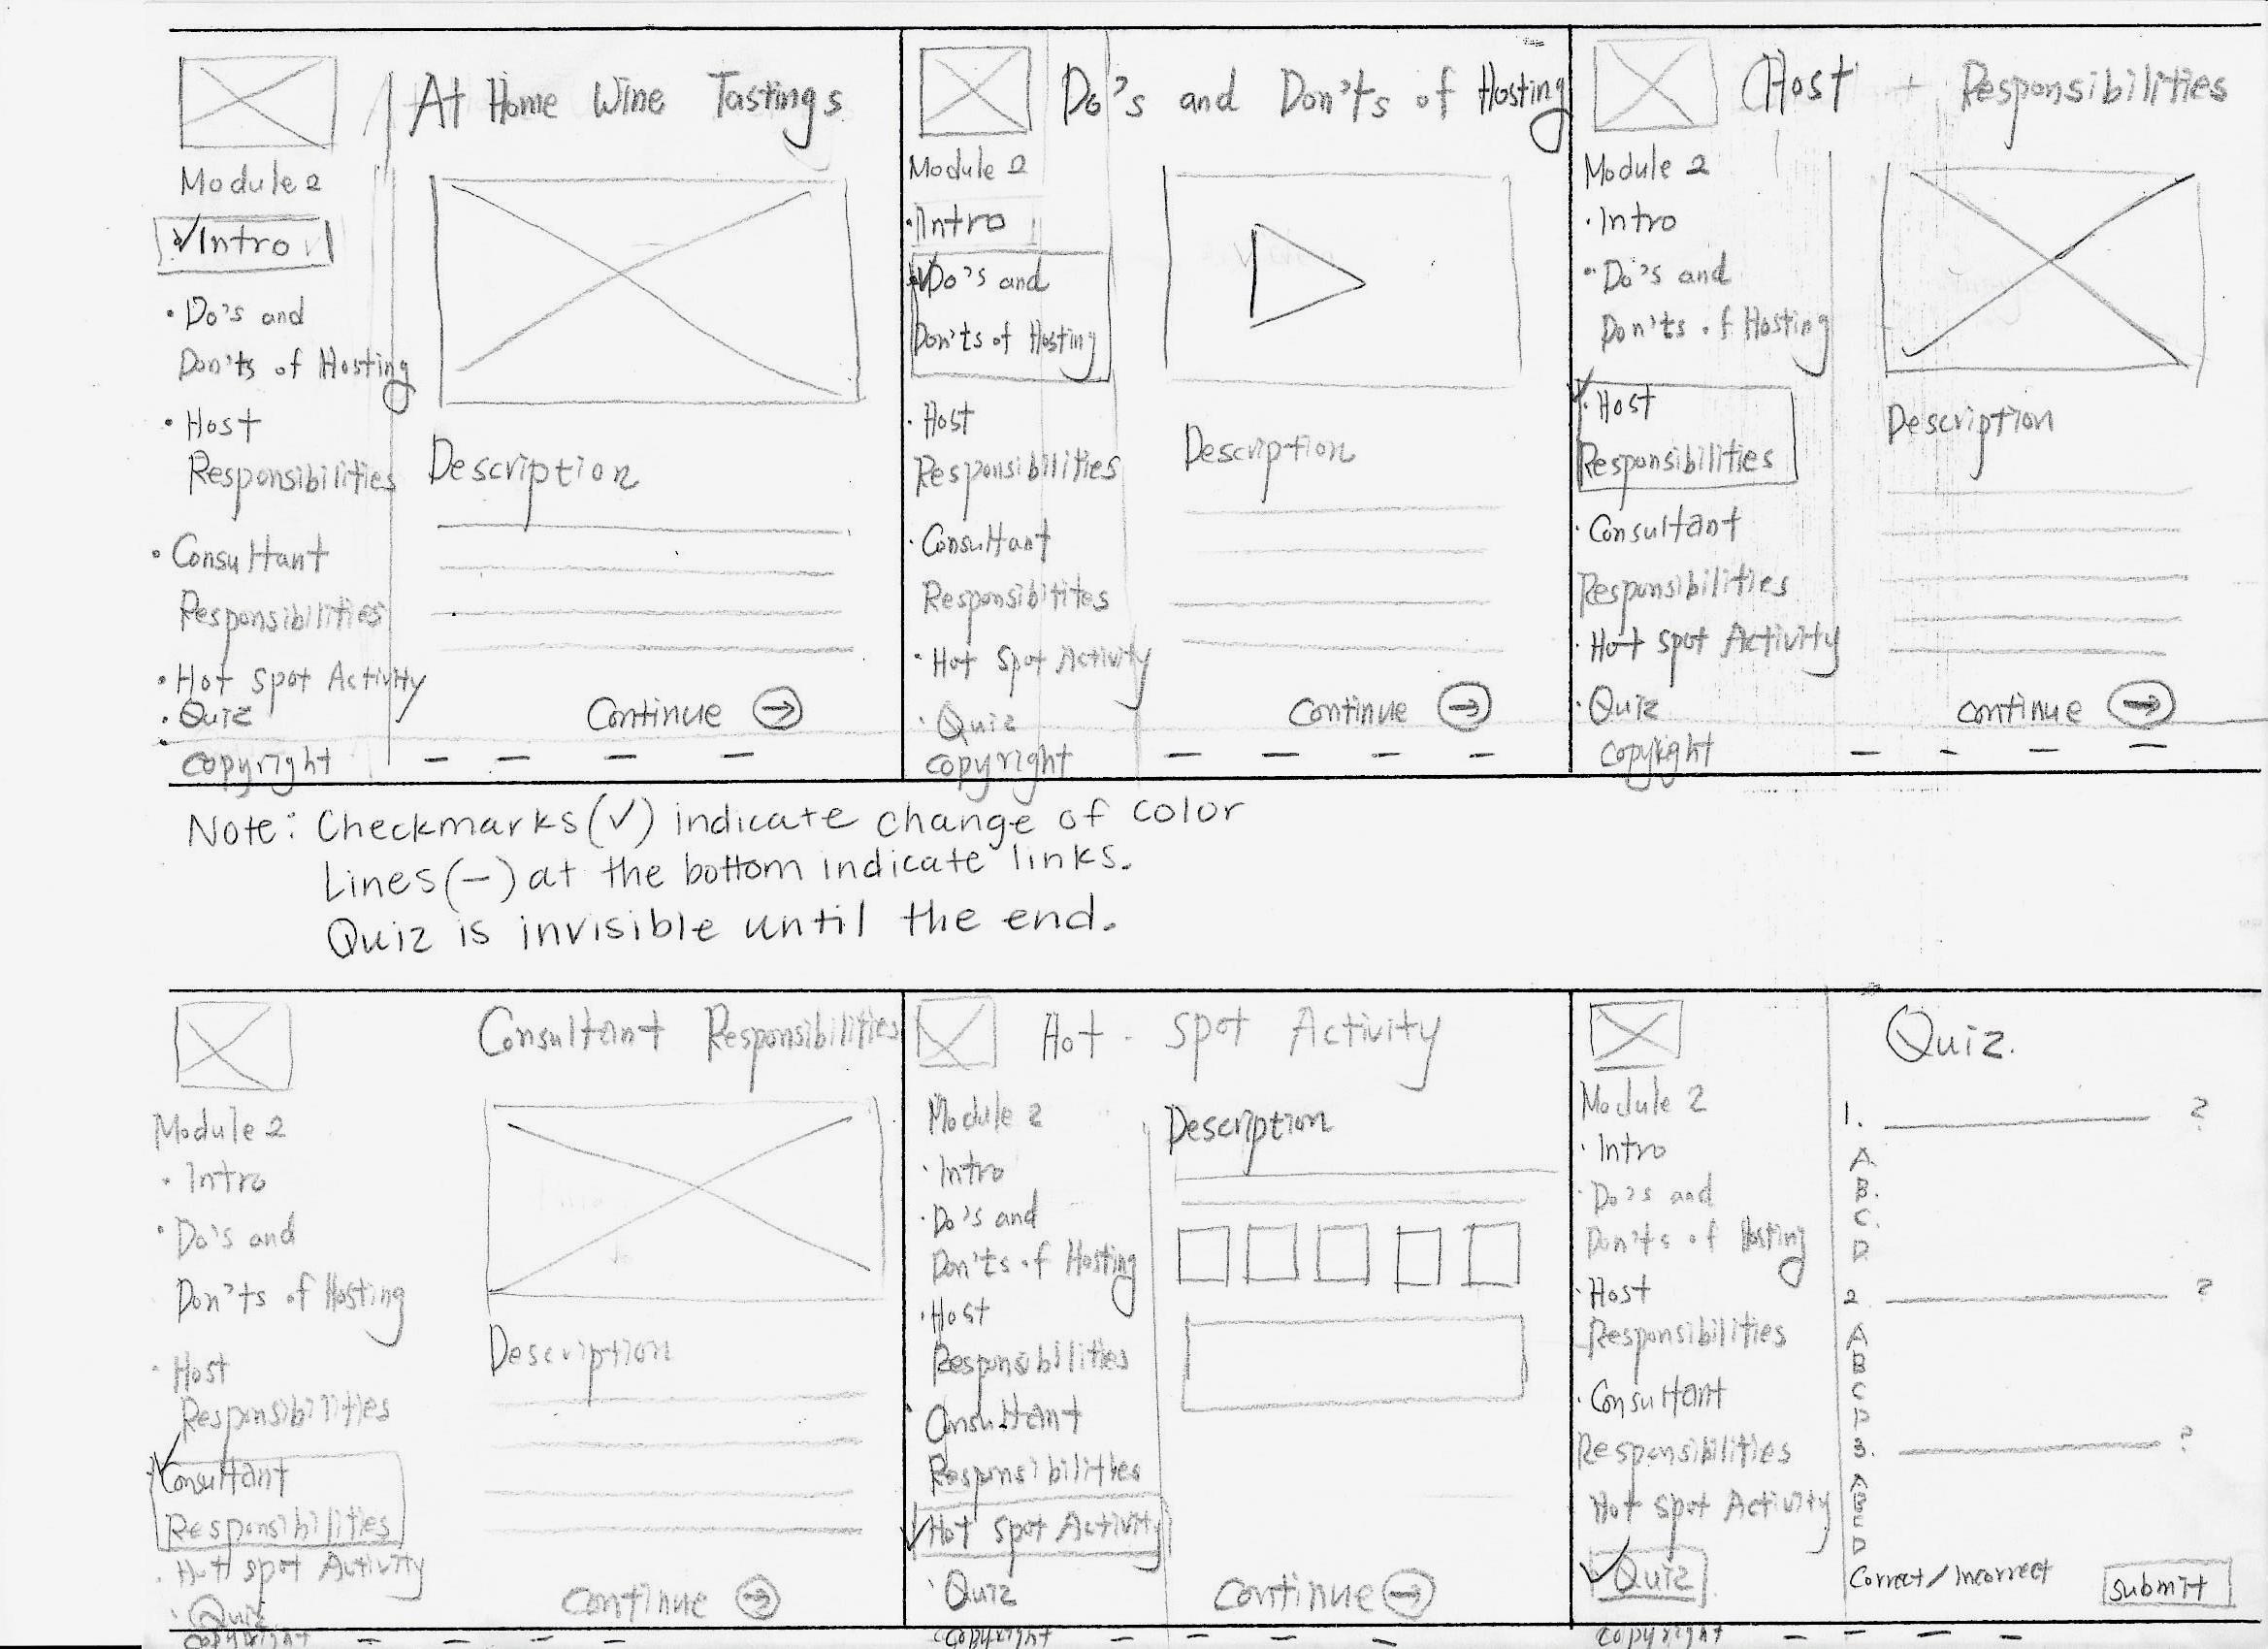 At Home Wine Tastings
Module 2
✓Intro
• Do's and
Don'ts of Hosting
• Host
Responsibilities
• Consultant
Responsibilities
• Hot Spot Activity
• Quiz
copyright
Description
Continue →
Do's and Don'ts of Hosting
Module 2
• Intro
✓Do's and
Don'ts of Hosting
• Host
Responsibilities
• Consultant
Responsibitites
• Hot Spot Activity
• Quiz
copyright
Description
Continue →
Host + Responsibilities
Module 2
• Intro
• Do's and
Don'ts of Hosting
✓• Host
Responsibilities
• Consultant
Responsibilities
• Hot Spot Activity
• Quiz
copyright
Description
continue →
Note: Checkmarks(✓) indicate change of color
Lines(—) at the bottom indicate links.
Quiz is invisible until the end.
Consultant Responsibilities
Module 2
• Intro
• Do's and
Don'ts of Hosting
• Host
Responsibilities
✓Consultant
Responsibilities
• Hot Spot Activity
• Quiz
copyright
Description
Continue →
Hot - Spot Activity
Module 2
• Intro
• Do's and
Don'ts of Hosting
• Host
Responsibilities
• Consultant
Responsibilities
✓Hot Spot Activity
• Quiz
copyright
Description
Continue →
Quiz.
Module 2
• Intro
• Do's and
Don'ts of Hosting
• Host
Responsibilities
• Consultant
Responsibilities
Hot Spot Activity
✓Quiz
copyright
1. ?
A.
B.
C.
D
2 ?
A
B
C
D
3. ?
A
B
C
D
Correct/Incorrect
submit